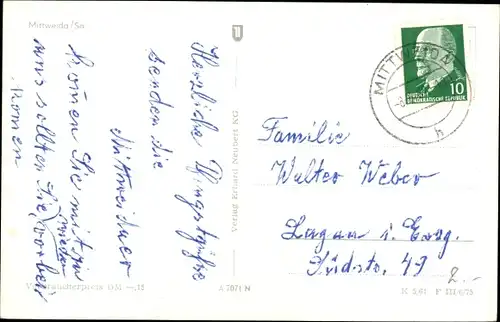 Mittweida/Sa.
Herzliche Pfingstgrüße
senden die
Mittweidaer
kommen Sie mit zu
uns sollten Sie wieder vorbei
komen
Verbraucherpreis DM —,15
A 7871 N
Verlag Erhard Neubert KG
MITTWEIDA
h
10
DEUTSCHE
DEMOKRATISCHE REPUBLIK
Familie
Walter Weber
Lugau i. Erzg.
Südstr. 49
2.-
K 5/61 F III/6/75